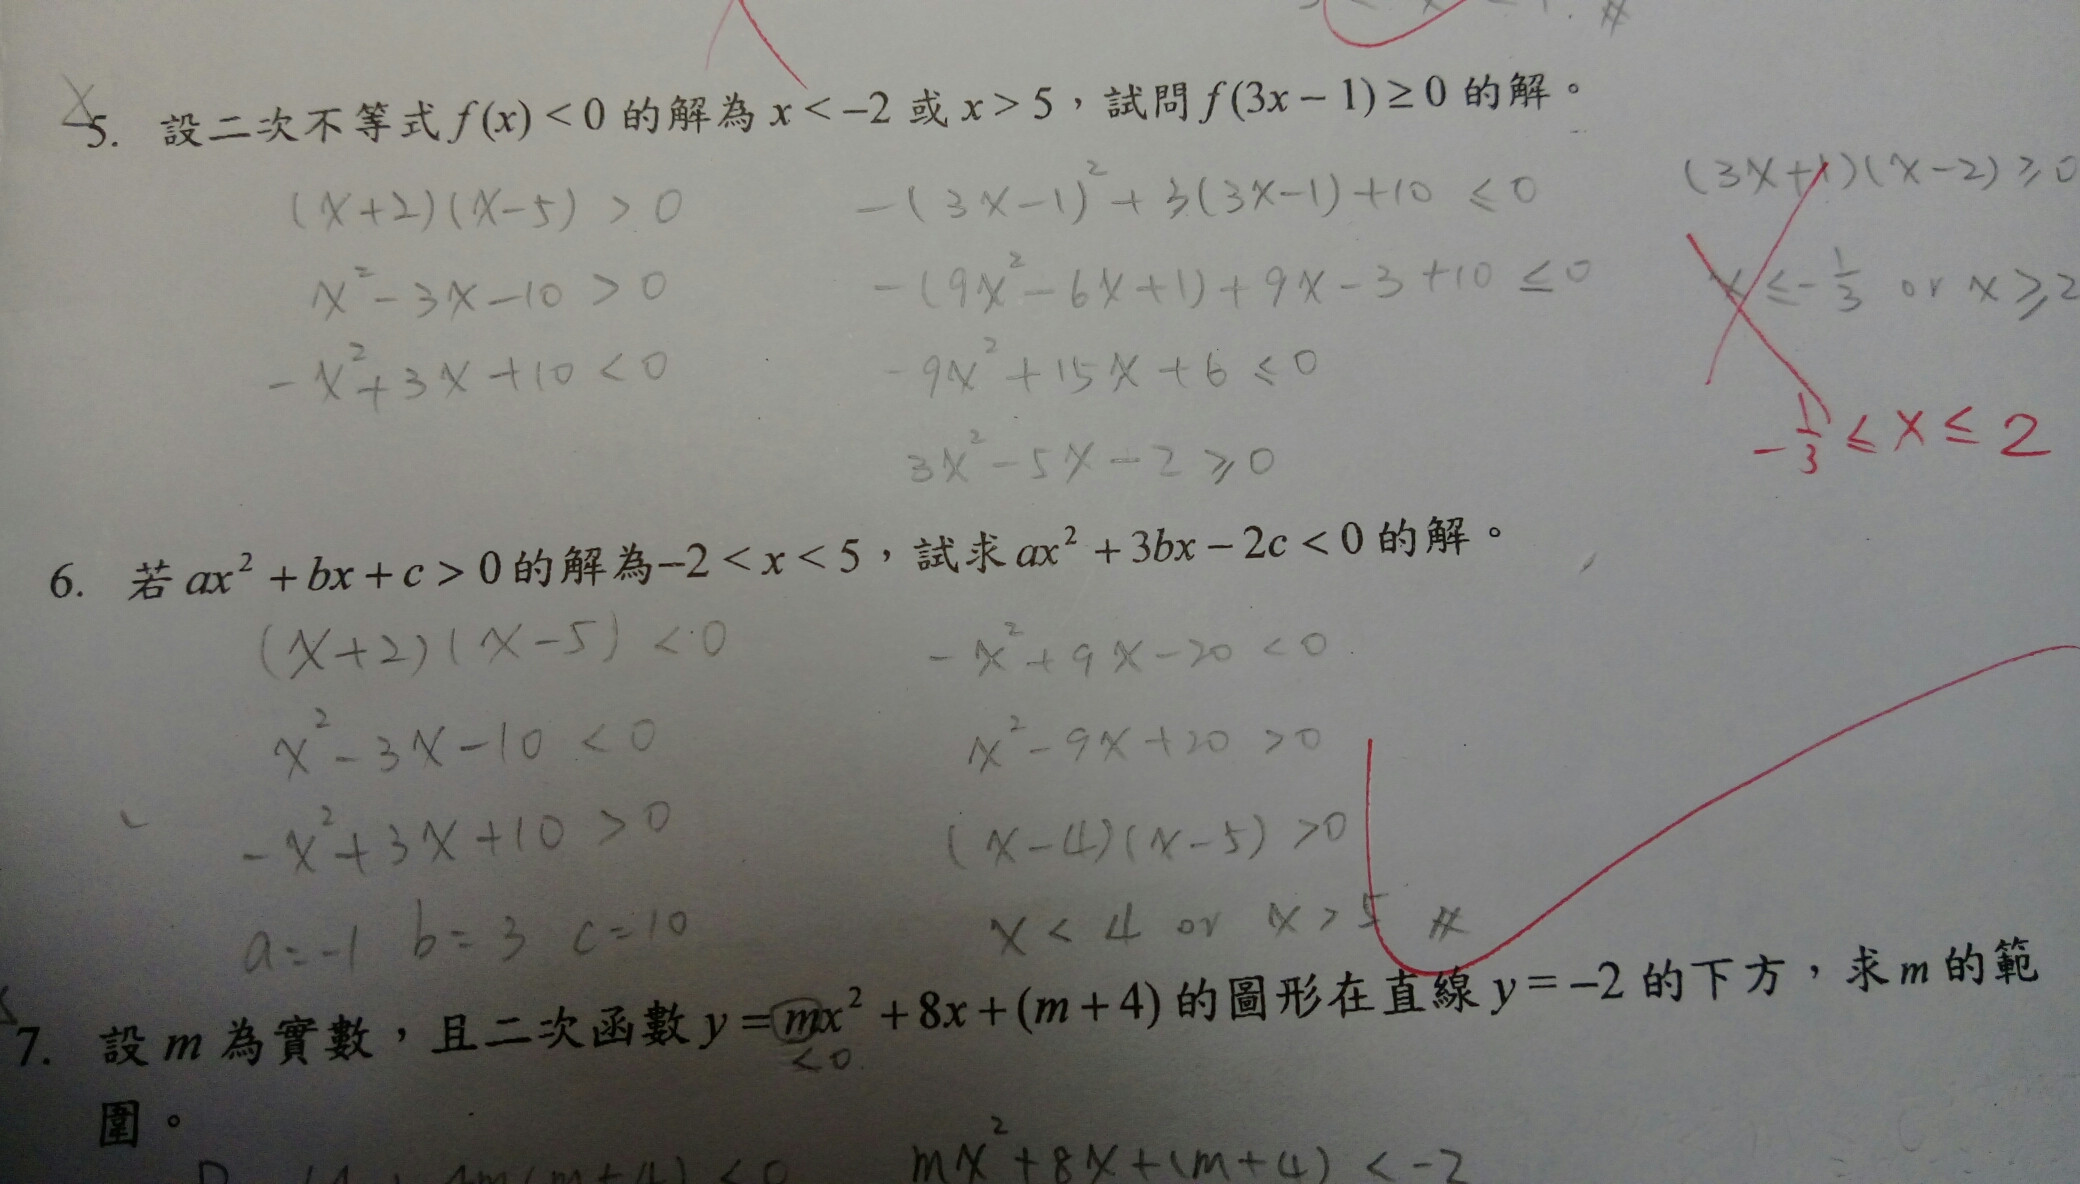 5. 設二次不等式 f(x) < 0 的解為 x < −2 或 x > 5，試問 f(3x − 1) ≥ 0 的解。
(x+2)(x-5) > 0
x² - 3x - 10 > 0
-x² + 3x + 10 < 0
-(3x-1)² + 3(3x-1) + 10 ≤ 0
-(9x² - 6x + 1) + 9x - 3 + 10 ≤ 0
-9x² + 15x + 6 ≤ 0
3x² - 5x - 2 ≥ 0
(3x+1)(x-2) ≥ 0
x ≤ -1/3 or x ≥ 2
-1/3 ≤ x ≤ 2
6. 若 ax² + bx + c > 0 的解為 −2 < x < 5，試求 ax² + 3bx − 2c < 0 的解。
(x+2)(x-5) < 0
x² - 3x - 10 < 0
-x² + 3x + 10 > 0
a=-1 b=3 c=10
-x² + 9x - 20 < 0
x² - 9x + 20 > 0
(x-4)(x-5) > 0
x < 4 or x > 5 #
7. 設 m 為實數，且二次函數 y = mx² + 8x + (m + 4) 的圖形在直線 y = −2 的下方，求 m 的範
<0
圍。
mx² + 8x + (m+4) < -2